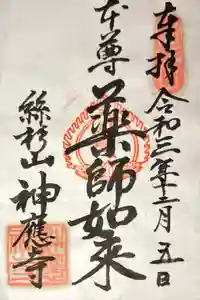 奉拝
令和三年十二月五日
本尊
薬師如来
絲杉山神應寺